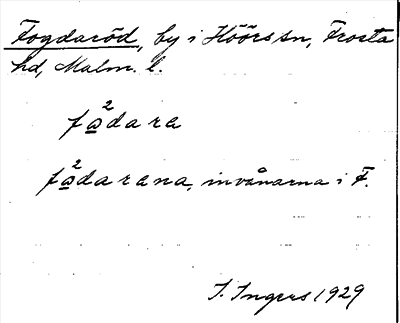 Fogdaröd, by i Höörs sn, Frosta
hd, Malm. l.
2
fo̲dare
2
fo̲darena, invånarna i F.
I. Ingers 1929